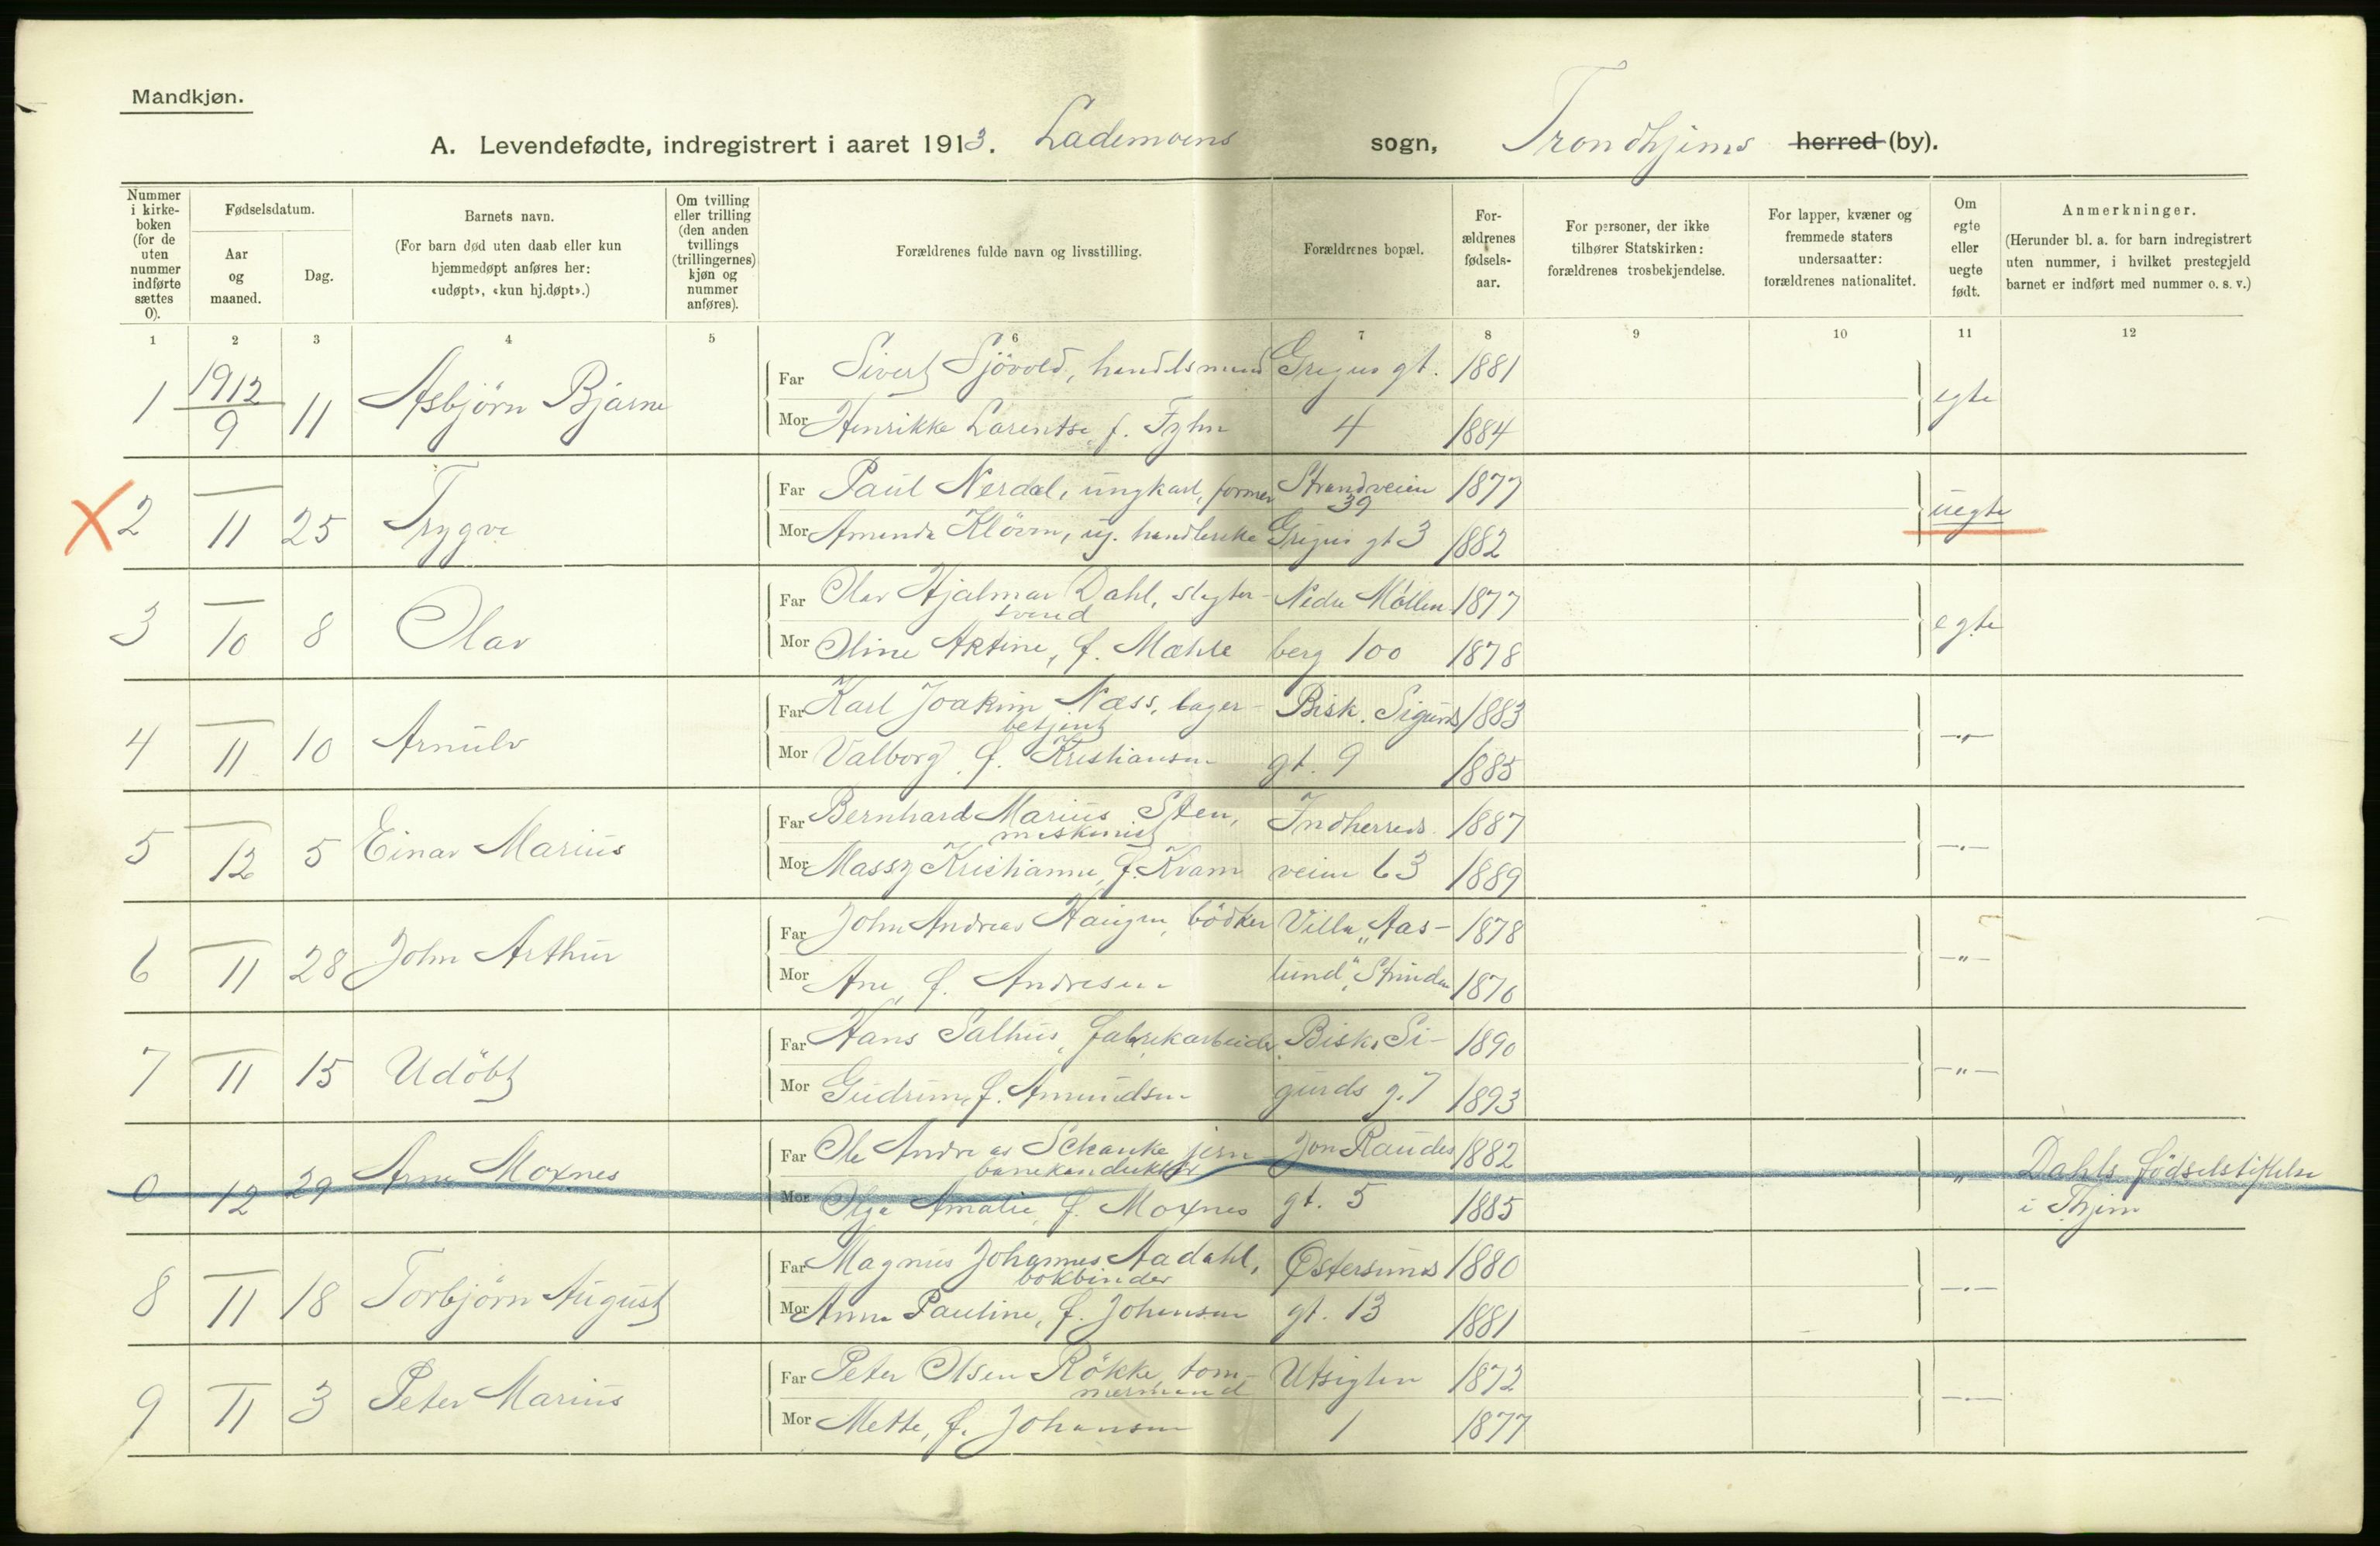 Mandkjøn.
A. Levendefødte, indregistrert i aaret 1913. Lademoens sogn, Trondhjems herred (by).
Nummer i kirkeboken (for de uten nummer indførte sættes 0).
Fødselsdatum.
Aar og maaned.
Dag.
Barnets navn.
(For barn død uten daab eller kun hjemmedøpt anføres her: «udøpt», «kun hj.døpt».)
Om tvilling eller trilling (den anden tvillings (trillingernes) kjøn og nummer anføres).
Forældrenes fulde navn og livsstilling.
Forældrenes bopæl.
Forældrenes fødselsaar.
For personer, der ikke tilhører Statskirken: forældrenes trosbekjendelse.
For lapper, kvæner og fremmede staters undersaatter: forældrenes nationalitet.
Om egte eller uegte født.
Anmerkninger.
(Herunder bl. a. for barn indregistrert uten nummer, i hvilket prestegjeld barnet er indført med nummer o. s. v.)
1 2 3 4 5 6 7 8 9 10 11 12
1 1912/9 11 Asbjörn Bjarne Far Sivert Sjövold, handelsmand Gregus gt. 1881 egte
Mor Henrikke Larentse f. Fyhn 4 1884
X 2 — 11 25 Trygve Far Paul Nerdal, ungkarl, former Strandveien 39 1877 uegte
Mor Amanda Klöven, ug. handlerske Gregus gt 3 1882
3 — 10 8 Olav Far Olav Hjalmar Dahl, slagter- Nedre Möllen 1877 egte
svend
Mor Oline Artine, f. Mæhle berg 100 1878
4 — 11 10 Arnulv Far Karl Joakim Næss, lager- Bisk. Sigurds 1883 —"—
betjent
Mor Valborg f. Kristiansen gt. 9 1885
5 — 12 5 Einar Marius Far Bernhard Marius Sten, Indherreds- 1887 —"—
maskinist
Mor Massy Kristianne, f. Kvam veien 63 1889
6 — 11 28 John Arthur Far John Andreas Haugen, bödker Villa „Aas- 1878 —"—
Mor Ane, f. Andresen lund", Strinden 1876
7 — 11 15 Udöbt Far Hans Salhus, fabrikarbeider Bisk. Si- 1890 —"—
Mor Gudrun, f. Amundsen gurds g. 7 1893
0 12 29 Arne Moxnes Far Ole Andreas Schanke jern- Jon Raudes 1882 " Dahls födselstiftelse
banekonduktör
Mor Olga Amalie, f. Moxnes gt. 5 1885 i Thjem
8 — 11 18 Torbjörn August Far Magnus Johannes Aadahl, Østersunds 1880 —"—
bokbinder
Mor Anna Pauline, f. Johansen gt. 13 1881
9 — 11 3 Peter Marius Far Peter Olsen Rökke, tom- Utsigten 1872 —"—
mermand
Mor Mette, f. Johansen 1 1877